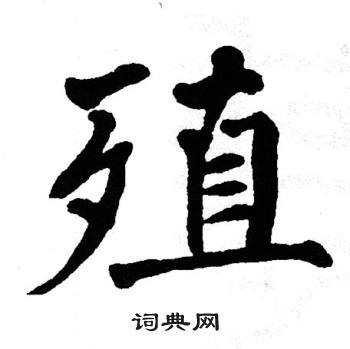 殖
词典网